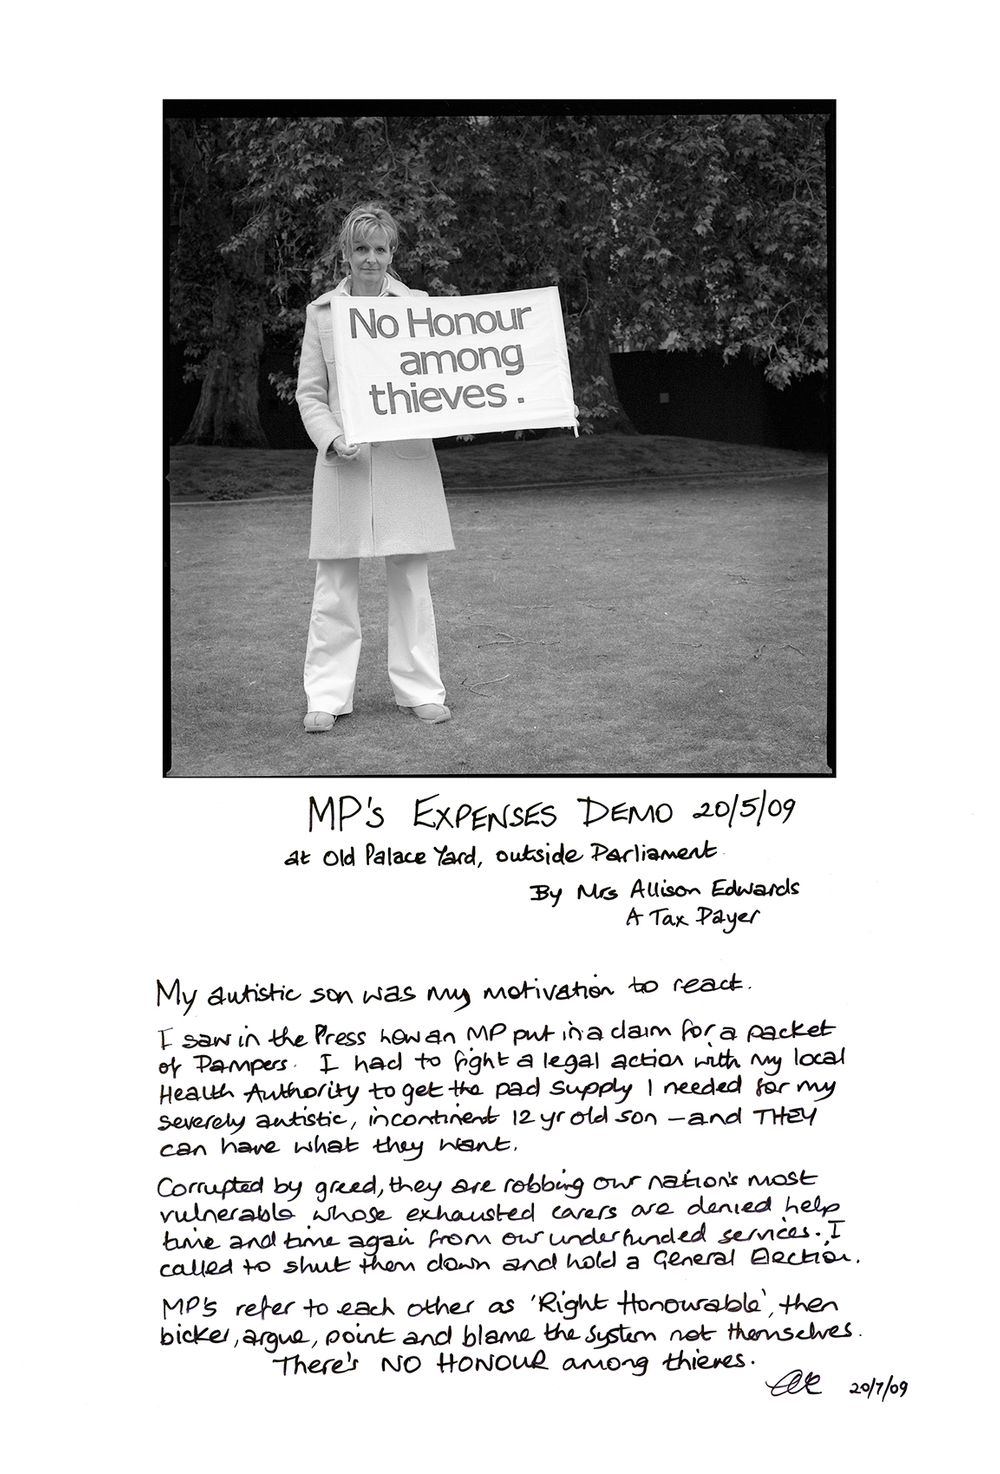 No Honour
among
thieves.
MP's EXPENSES DEMO 20/5/09
at Old Palace Yard, outside Parliament
By Mrs Allison Edwards
A Tax Payer
My autistic son was my motivation to react.
I saw in the Press how an MP put in a claim for a packet
of Pampers. I had to fight a legal action with my local
Health Authority to get the pad supply I needed for my
severely autistic, incontinent 12 yr old son – and THEY
can have what they want.
Corrupted by greed, they are robbing our nation's most
vulnerable whose exhausted carers are denied help
time and time again from our underfunded services. I
called to shut them down and hold a General Election.
MP's refer to each other as 'Right Honourable', then
bicker, argue, point and blame the system not themselves.
There's NO HONOUR among thieves.
20/7/09